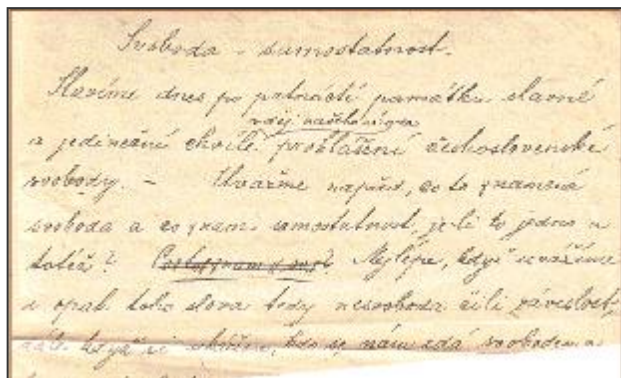 Svoboda – samostatnost.
Slavíme dnes po patnácté památku slavné
v dějinách
a jedinečné chvíle prohlášení československé
svobody. – Uvažme napřed, co to znamená
svoboda a co znam. samostatnost, je-li to jedno a
totéž? Nejlépe, když uvážíme
a opak toho slova tedy nesvoboda čili závislost,
dále když si ukážeme, kdo se nám zdá svoboden a